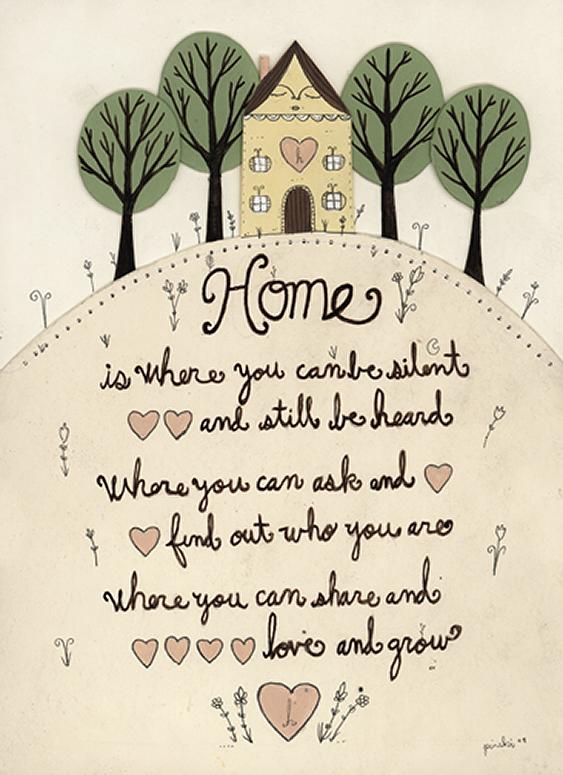 h
Home
is where you can be silent
and still be heard
Where you can ask and
find out who you are
where you can share and
love and grow
h